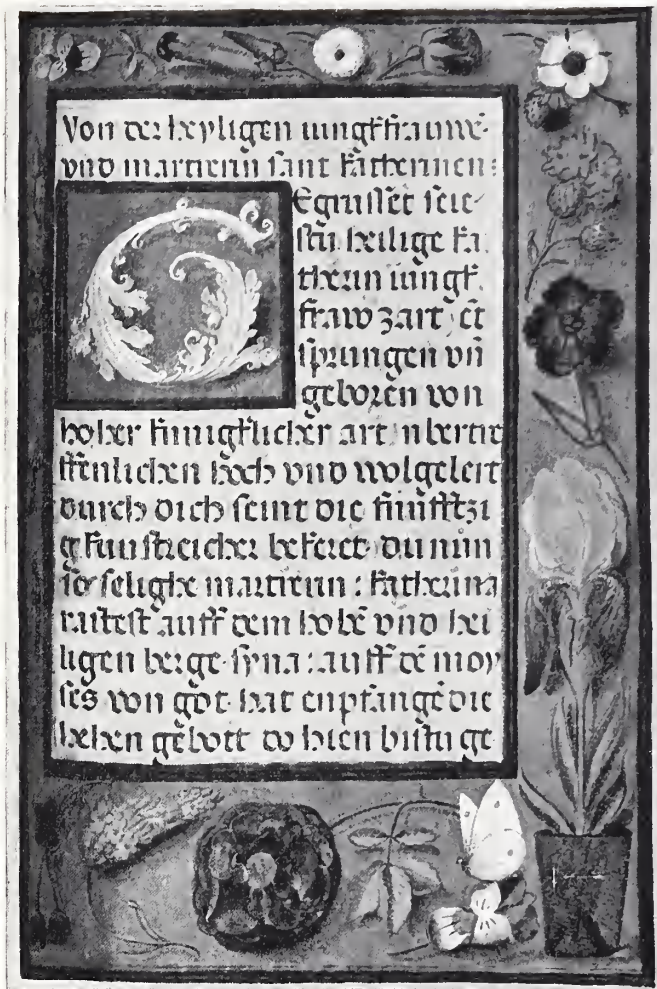 Von der heyligen iungkfrauwē
vnd martrerin sant katherinen:
Egrusset seie
stu heilige ka
therin iungk
fraw zart et
sprungen vn̄
geboren von
hoher kunigklicher art
ffenlichen hoch vnd wolgelert
durch dich seint die funfftzi
g kunstreicher bekeret du nun
so selighe martrerin : katherina
rastest auff dem hohē vnd hei
ligen berge syna : auff dē moy
ses von got hat enpfangē die
zehen gebott do hien bistu ge